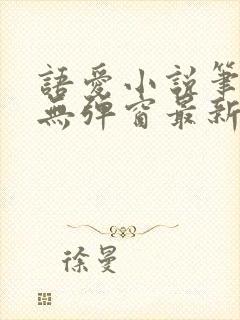 語愛小說筆
無彈窗最新
徐曼